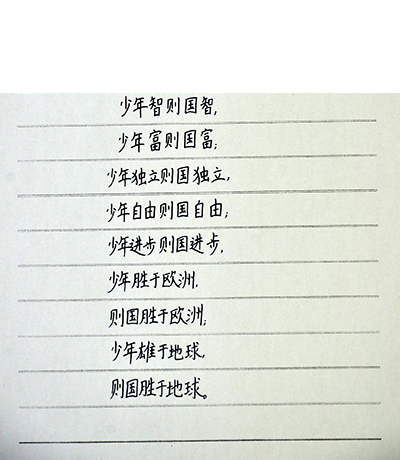 少年智则国智,
少年富则国富;
少年独立则国独立,
少年自由则国自由;
少年进步则国进步,
少年胜于欧洲,
则国胜于欧洲;
少年雄于地球,
则国胜于地球。